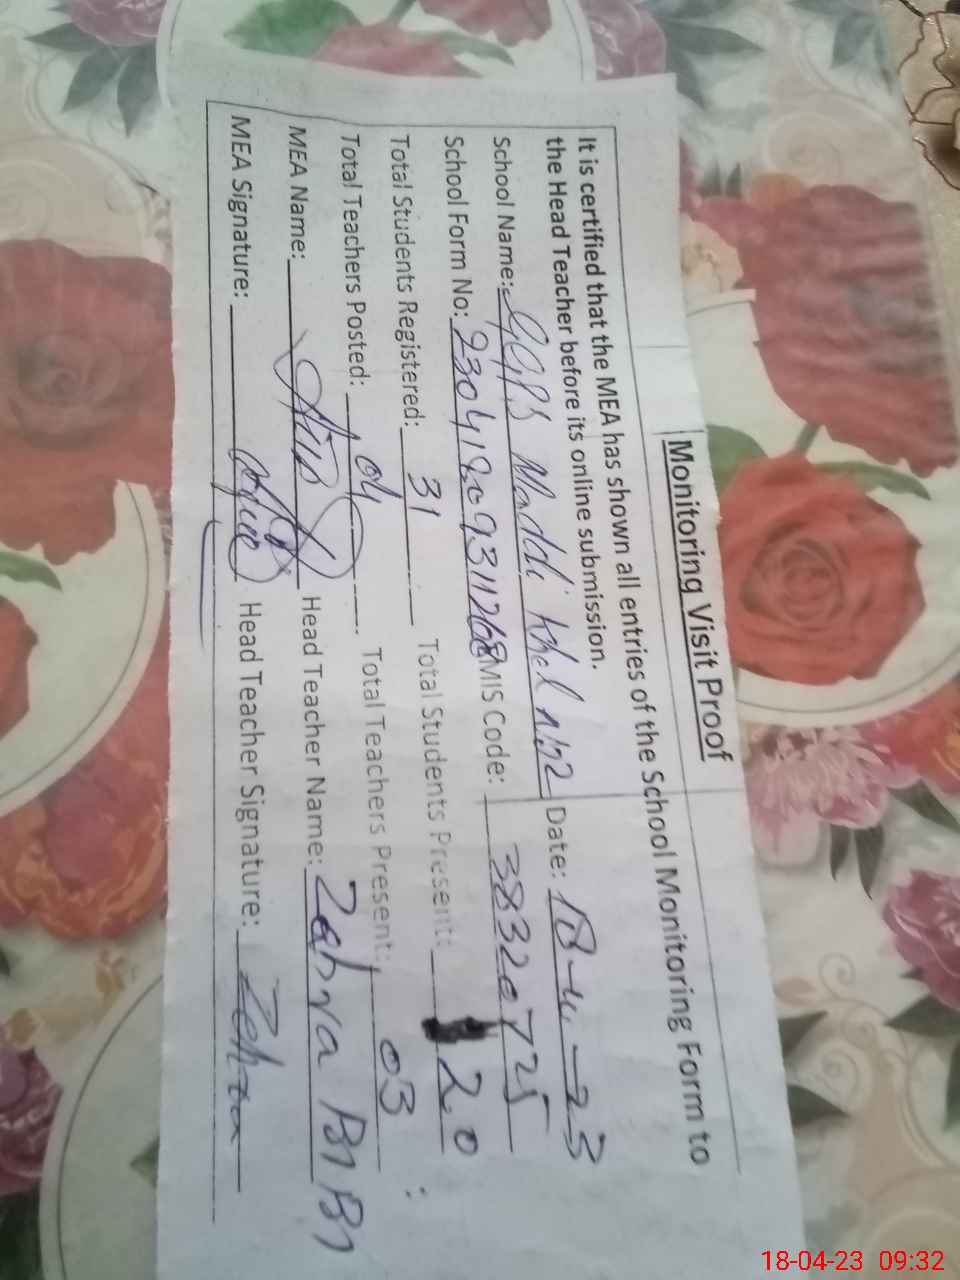 Monitoring Visit Proof
It is certified that the MEA has shown all entries of the School Monitoring Form to
the Head Teacher before its online submission.
School Name: GGPS Maddi Khel no2 Date: 18-4-23
School Form No: MIS Code: 38320725
Total Students Registered: 31 Total Students Present: 20
Total Teachers Posted: 04 Total Teachers Present: 03
MEA Name: Head Teacher Name: Zahra Bi Bi
MEA Signature: Head Teacher Signature: Zehra
18-04-23 09:32